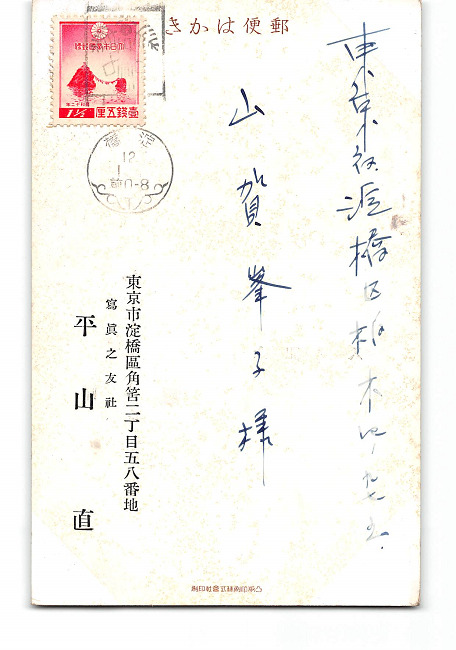 郵便はかき
大日本帝國郵便
壹錢五厘
1½
12
前0-8
東京市淀橋区柏木
山賀峯子様
東京市淀橋區角筈二丁目五八番地
寫眞之友社
平山直